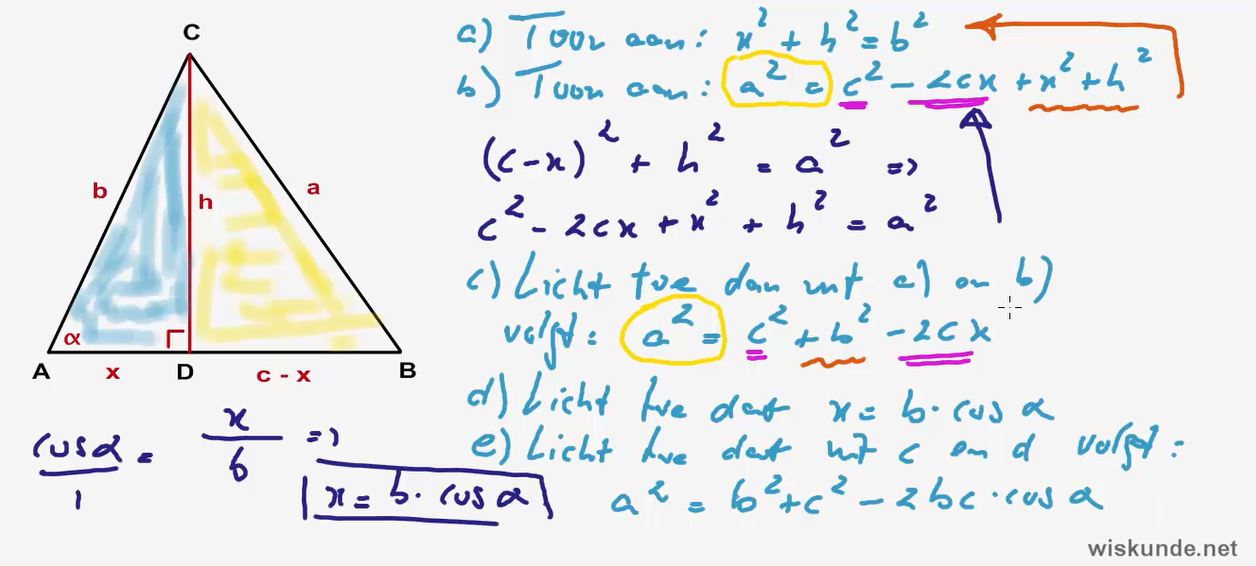 C
b
h
a
α
A
x
D
c - x
B
a) Toon aan: x² + h² = b²
b) Toon aan: a² = c² - 2cx + x² + h²
(c-x)² + h² = a² =>
c² - 2cx + x² + h² = a²
c) Licht toe dan uit a) en b)
volgt: a² = c² + b² - 2cx
d) Licht toe dat x = b · cos α
e) Licht toe dat uit c en d volgt:
a² = b² + c² - 2bc · cos α
cos α / 1 = x / b =>
x = b · cos α
wiskunde.net